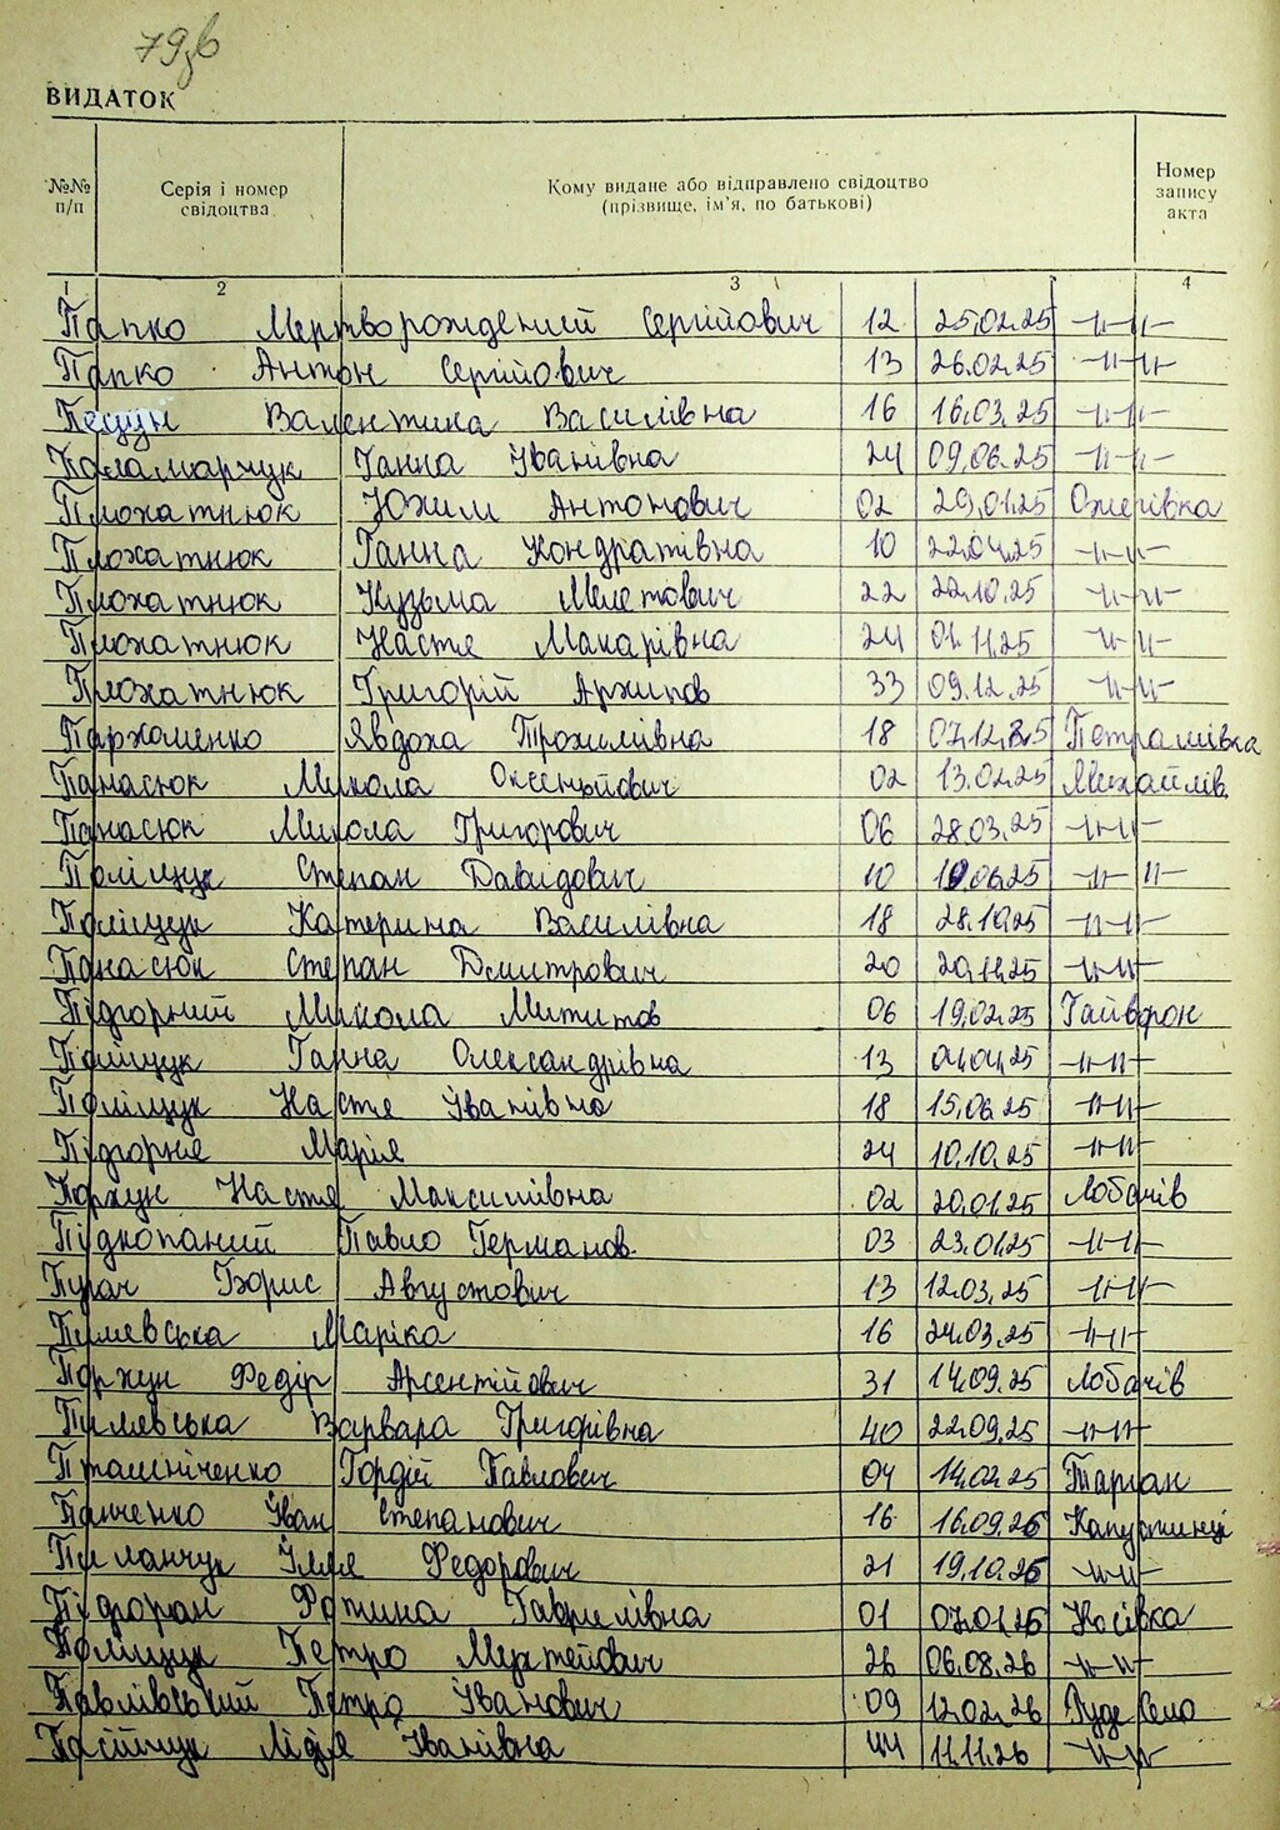 79зв
ВИДАТОК
№№ п/п Серія і номер свідоцтва Кому видане або відправлено свідоцтво (прізвище, ім'я, по батькові) Номер запису акта
1 2 3 4
Папко Мертворождений Сергійович 12 25.02.25 -||-||-
Папко Антон Сергійович 13 26.02.25 -||-||-
Валентина Василівна 16 16.03.25 -||-||-
Паламарчук Ганна Іванівна 24 09.06.25 -||-||-
Плохатнюк Юхим Антонович 02 29.01.25 Ожегівка
Плохатнюк Ганна Кондратівна 10 22.04.25 -||-||-
Плохатнюк Кузьма Мелетович 22 22.10.25 -||-||-
Плохатнюк Настя Макарівна 24 01.11.25 -||-||-
Плохатнюк Григорій Архипов 33 09.12.25 -||-||-
Пархоменко Явдоха Трохимівна 18 07.12.25 Петрашівка
Панасюк Микола Оксентійович 02 13.02.25 Михайлів.
Панасюк Микола Григорович 06 28.03.25 -||-||-
Поліщук Степан Давидович 10 10.06.25 -||-||-
Поліщук Катерина Василівна 18 28.10.25 -||-||-
Панасюк Степан Дмитрович 20 20.11.25 -||-||-
Підгорний Микола Мититов 06 19.02.25 Гайворон
Поліщук Ганна Олександрівна 13 04.04.25 -||-||-
Поліщук Настя Іванівна 18 15.06.25 -||-||-
Підгорня Марія 24 10.10.25 -||-||-
Поржун Настя Максимівна 02 20.01.25 Лобачів
Підкопаний Павло Германов. 03 23.01.25 -||-||-
Пугач Борис Августович 13 12.03.25 -||-||-
Пилевська Маріка 16 24.03.25 -||-||-
Поржун Федір Арсентійович 31 14.09.25 Лобачів
Пилевська Варвара Григорівна 40 22.09.25 -||-||-
Пташніченко Гордій Павлович 04 14.02.25 Тарган
Панченко Іван Степанович 16 16.09.26 Капустинці
Пиланчук Ілля Федорович 21 19.10.26 -||-||-
Підгоран Фотина Гаврилівна 01 07.01.26 Косівка
Поліщук Петро 26 06.08.26 -||-||-
Павлівський Петро Іванович 09 12.02.26 Руде Село
Пасійчук Лідія Іванівна 44 11.11.26 -||-||-